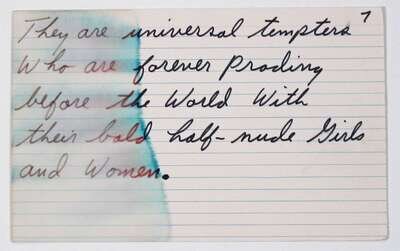 They are universal tempters 7
Who are forever Prading
before the World With
their bold half-nude Girls
and Women.